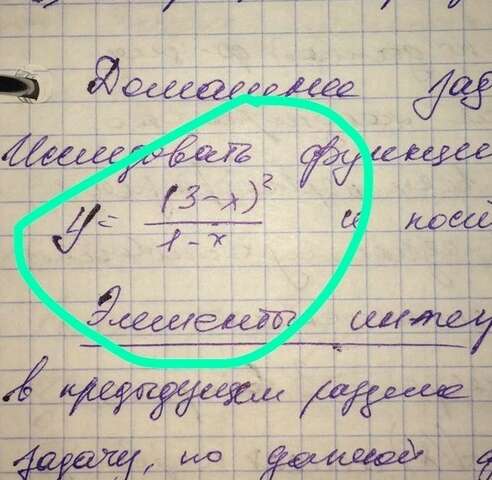 Домашнее зад
Исследовать функци
y = (3-x)² / 1-x и пост
Элементы интег
в предыдущем разделе
задачу, по данной ф